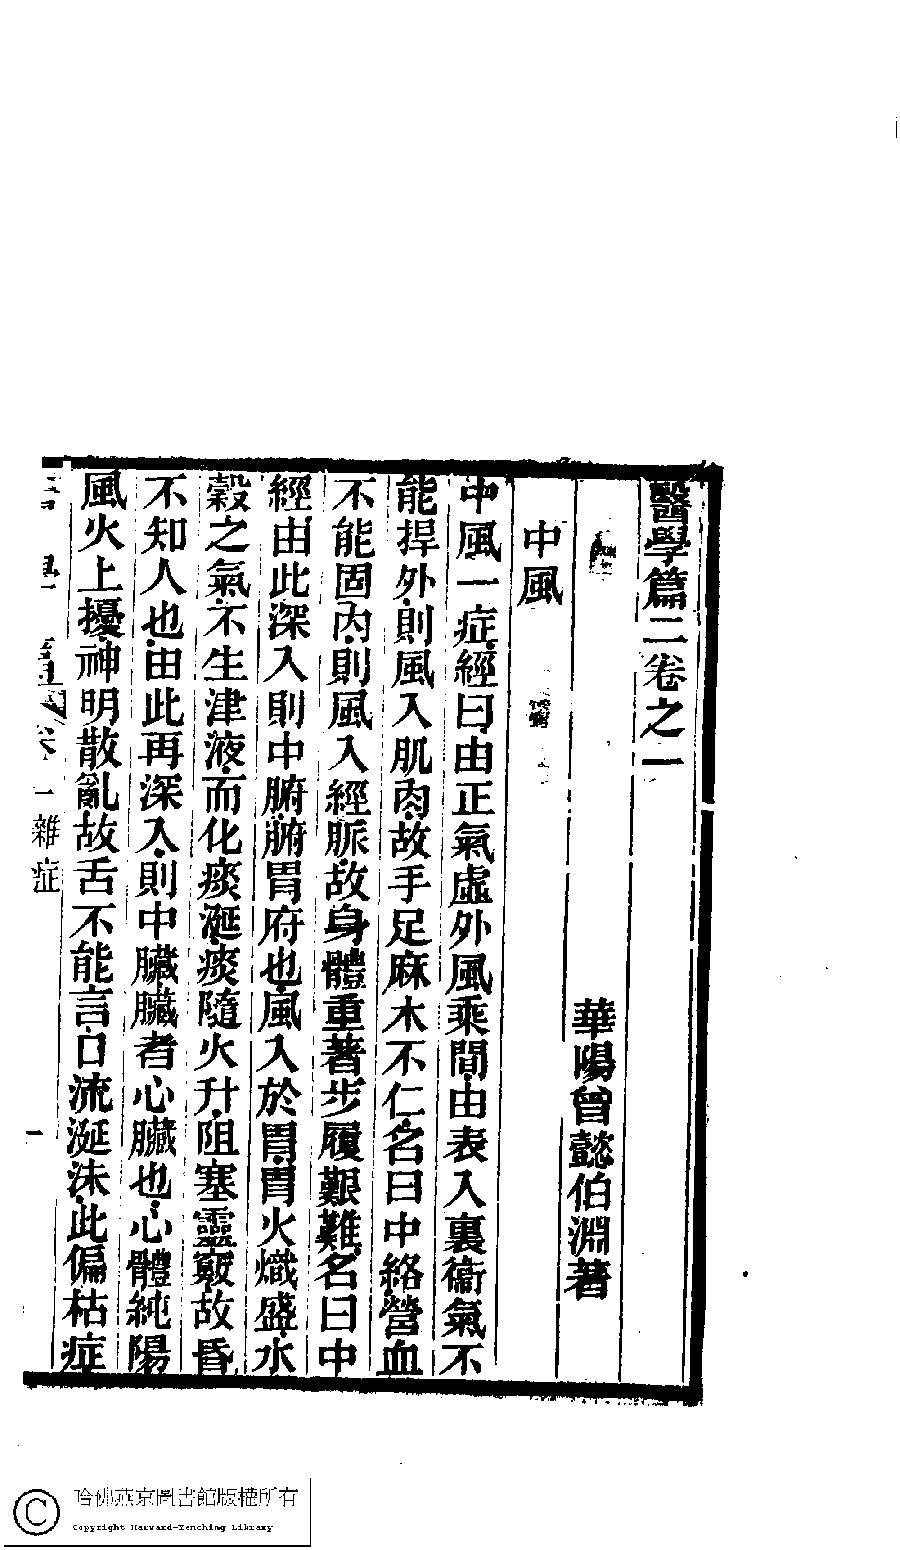 醫學篇二卷之一
華陽曾懿伯淵著
中風
中風一症經曰由正氣虛外風乘間由表入裏衞氣不
能捍外則風入肌肉故手足麻木不仁名曰中絡營血
不能固內則風入經脈故身體重著步履艱難名曰中
經由此深入則中腑腑胃府也風入於胃胃火熾盛水
穀之氣不生津液而化痰涎痰隨火升阻塞靈竅故昏
不知人也由此再深入則中臟臟者心臟也心體純陽
風火上擾神明散亂故舌不能言口流涎沫此偏枯症
卷一雜症
一
哈佛燕京圖書館版權所有
Copyright Harvard-Yenching Library